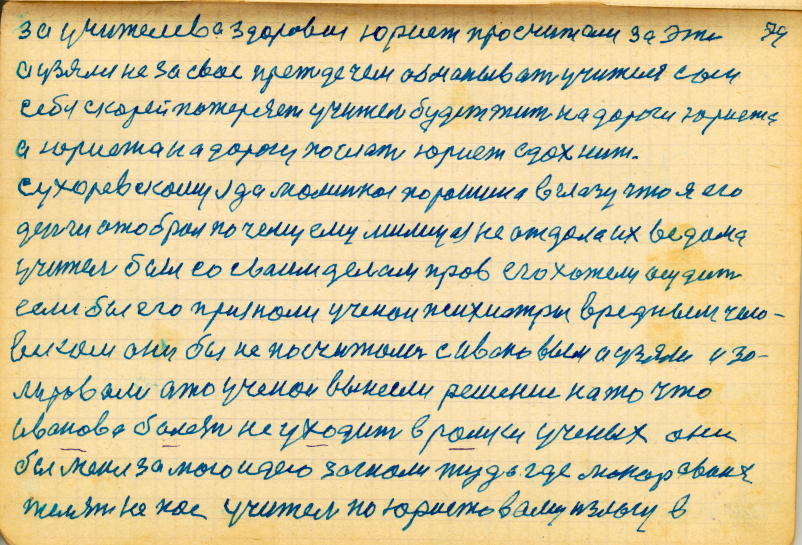 за учителева здоровия юрист просчитали за эти 79
а узяли не за свае прежде чем обманывать учителя сам
себя скорей потеряет учител будет жит на дороги юриста
а юриста на дорогу послат юрист сдохнит.
сухоревскому я дал молитвой порошина в глазу что я его
денги отобрал почему ему милиция не отдала их ведома
учител был со своим делам прав его хотели осудит
если бы его признали ученои психиатри вредным чело-
веком они бы не посчитались с ивановым а узяли изо-
лировали а то ученои вынесли решение на то что
иванова болезн не уходит в ролики ученых они
бы меня за маю идею загнали туда где макар своих
телят не пас учител по юристовому излогу в